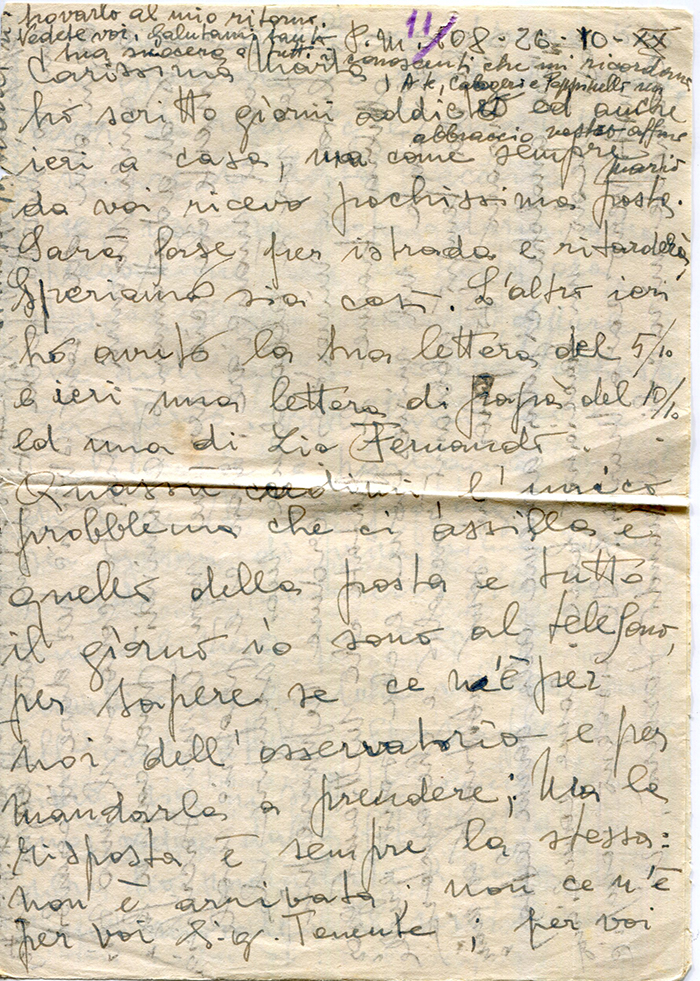 trovarlo al mio ritorno.
Vedete voi. Salutami tanto
tua suocera e tutti i conoscenti che mi ricordano
A te, Calogeri e Peppinelli un
abbraccio vostro affmo
Mario
11/
P.M. 508 - 26 - 10 - XX
Carissima Maria
ho scritto giorni addietro ed anche
ieri a casa, ma come sempre
da voi ricevo pochissima posta.
Sarà forse per istrada e ritarderà,
Speriamo sia così. L'altro ieri
ho avuto la tua lettera del 5/10
e ieri una lettera di Papà del 10/10
ed una di Zio Fernando.
Quassù credimi l'unico
probblema che ci assilla è
quello della posta e tutto
il giorno io sono al telefono,
per sapere se ce n'è per
noi dell'osservatorio e per
mandarla a prendere; Ma la
risposta è sempre la stessa:
non è arrivata; non ce n'è
per voi Sig. Tenente; per voi